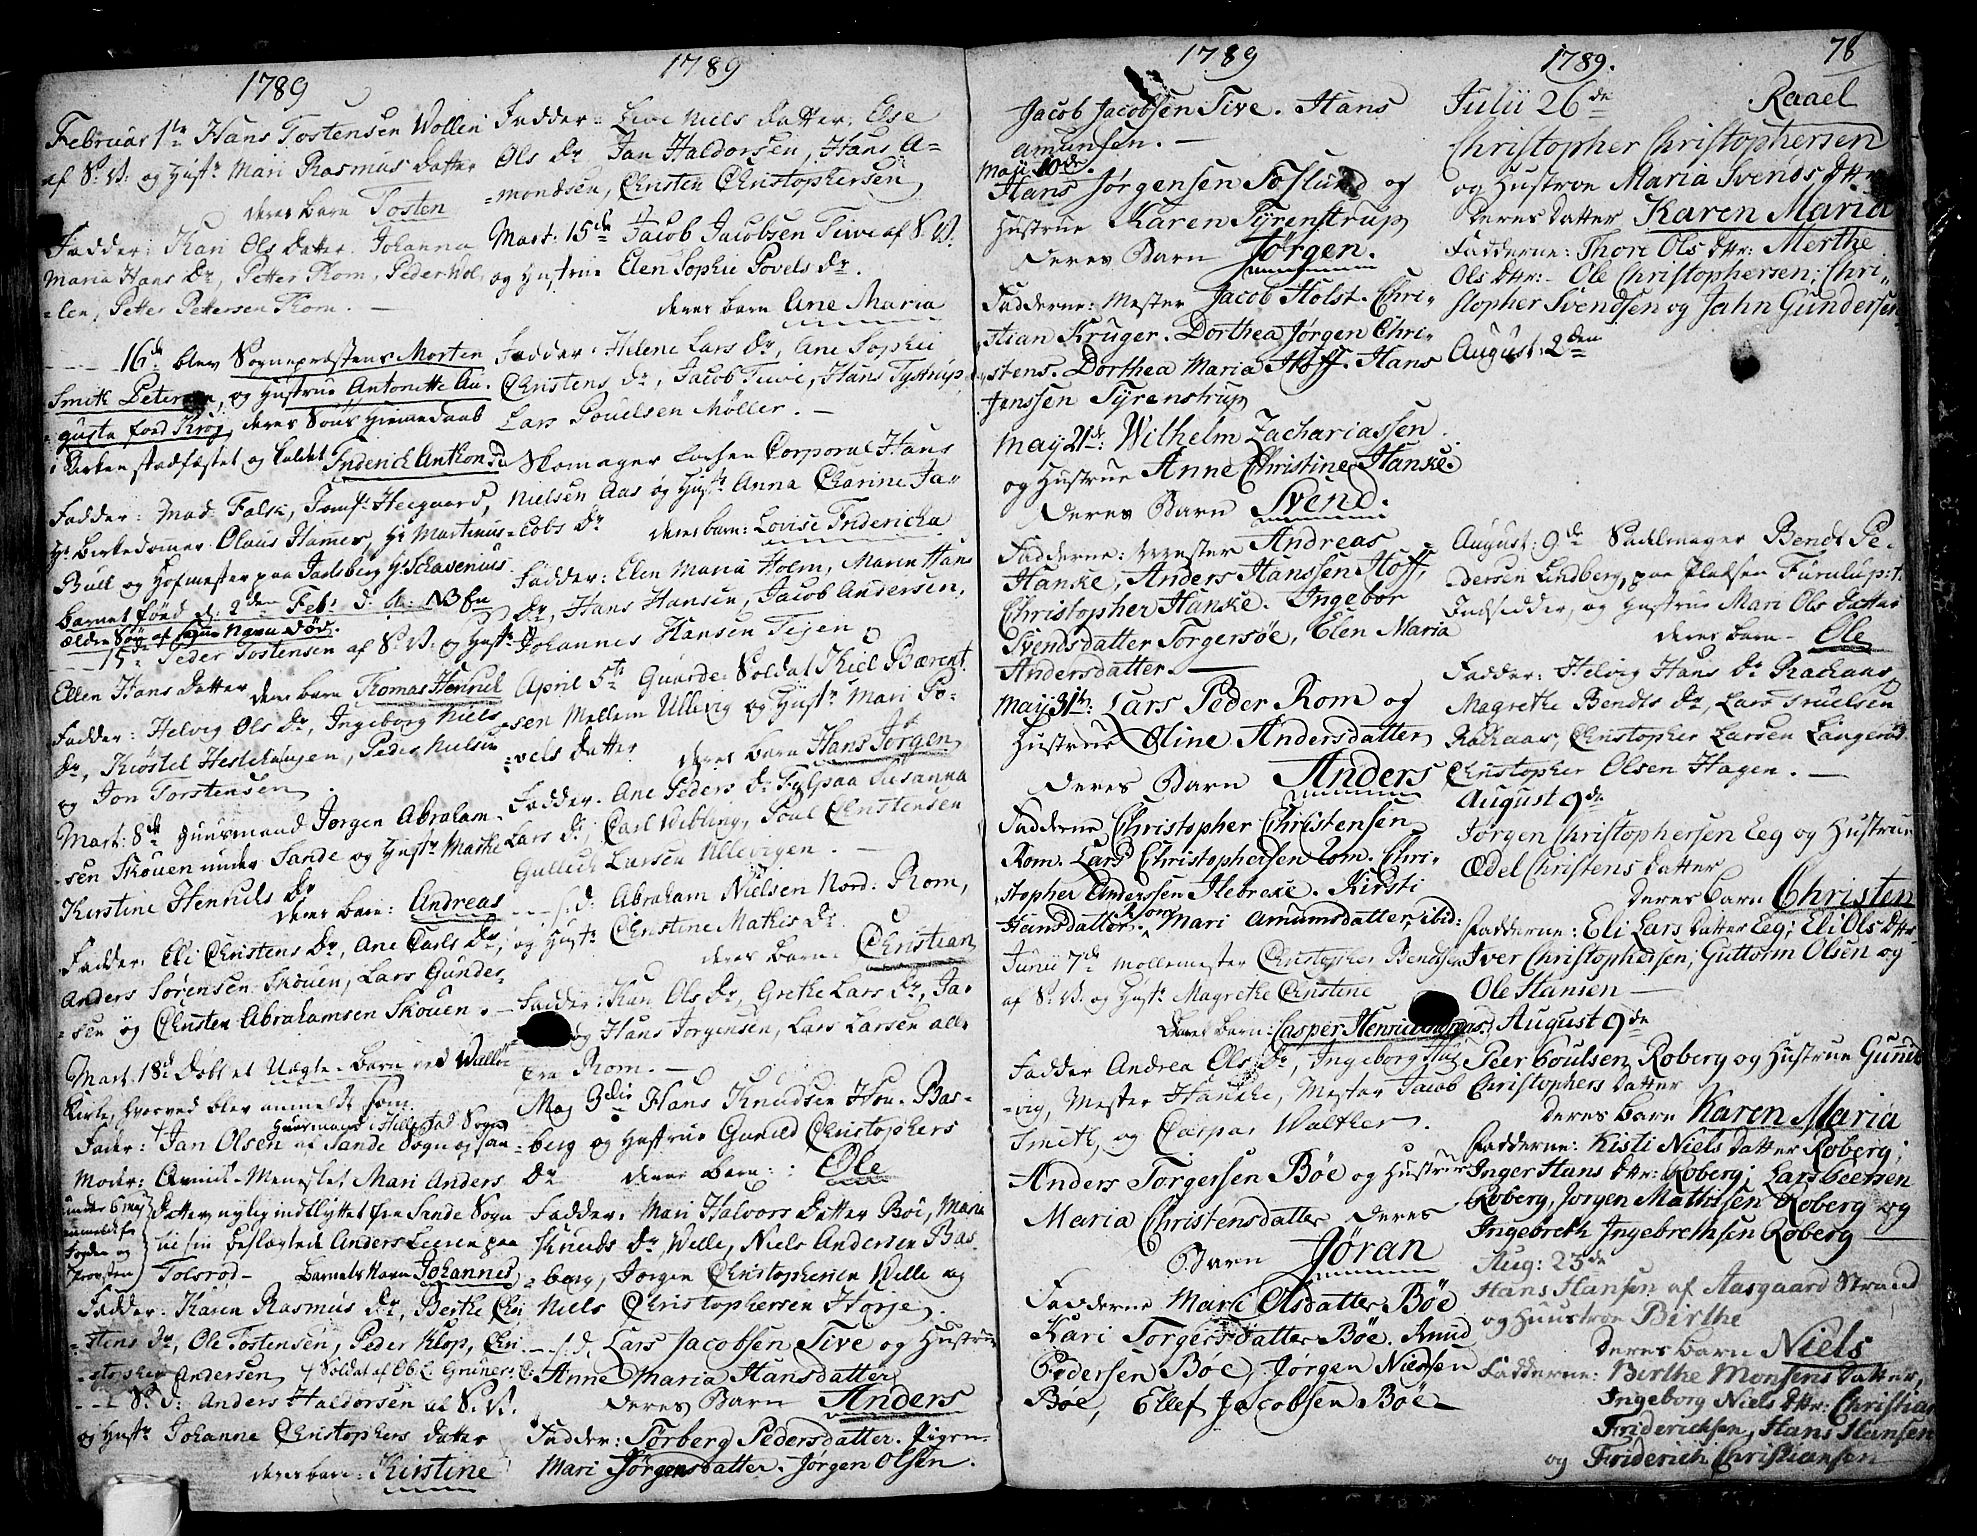 1789
Februar 1te Hans Tostensen Wollen
af S. V. og Hust. Mari Rasmus datter
deres barn Tosten
Fadder: Kari Ols datter, Johanna
Maria Hans Dr, Petter Rom, Peder Hol,
len, Petter Pettersen Rom. —
16de blev Sognepræstens Morten
Smith Petersen, og Hustrue Antonette Au-
gusta fød Krog, deres Søns Hiemmedaab
i Kirken stadfæstet og kaldet
Fadder: Mad. Falsk, Jomf. Heegaard,
Hr. Birkedomer Olaus Hames, Hr. Martinus
Bull og Hofmester paa Jarlsberg Hr. Schavenius
Barnet fød d. 2den Feb. d. A. NB En
ældre Søn af samme Navn død.
15de Peder Tostensen af S. V. og Hust.
Ellen Hans datter deres barn Thomas Henrich
Fadder: Helvig Ols Dr, Ingeborg Niels
Dr, Kiøstel Hestehaugen, Peder Nielsen
og Jon Torstensen.
Mart: 8de Huusmand Jørgen Abraham-
sen Skouen under Sande og Hust. Marthe
Kirstine Henrichs Dr
deres barn: Andreas
Fadder: Eli Christens Dr, Ane Carls Dr,
Anders Sørensen Skouen, Lars Gunder-
sen og Christen Abrahamsen Skouen. —
Mart. 18de Døbt et Uægte barn ved Walløe
Kirke, hvorved blev anmeldt som
Huusmand i Hillestad Sogn
Fader: Jan Olsen af Sande Sogn og som
Moder: Qvinde-Mennesket Mari Anders
datter nylig indflyttet fra Sande Sogn
til sin beslægted Anders Leeren paa
Tolsrød — Barnets Navn Johannes
under 6 Maj
anmeldt for
Fogden og
Provsten
Fadder: Karen Rasmus Dr, Berthe Chri-
stens Dr, Ole Tostensen, Peder Klop, Chri-
stopher Andersen
S. D: Anders Haldorsen af S. V.
og Hust. Johanne Christophers datter
deres barn: Kirstine
1789
Fadder: Live Niels datter, Else
Ols Dr, Jan Haldorsen, Hans A-
mondsen, Christen Christophersen
Mart: 15de Jacob Jacobsen Tiwe af S. V.
og Hustrue Elen Sophie Povels Dr.
deres barn Ane Maria
Fadder: Helene Lars Dr, Ane Sophie
Christens Dr, Jacob Tiwe, Hans Tystrup,
Lars Pouelsen Møller. —
Skomager Corporal Hans
Nielsen Aas og Hust. Anna Charine Ja-
cobs Dr deres barn: Lovise Fridericha
Fadder: Elen Maria Holm, Maren Hans
Dr, Hans Hansen, Jacob Andersen,
Johannes Hansen Teijen
April 5te Guarde: Soldat Kiel Bærent
sen Mellem Ullevig og Hust. Mari Po-
vels datter deres barn Hans Jørgen
Fadder: Ane Peders Dr, Susanna
Lars Dr, Carl Wibling, Poul Christensen
Gullich Larsen Ullevigen. —
S. d: Abraham Nielsen Nord: Rom,
og Hust. Christine Mathis Dr
deres barn: Christian
Fadder: Kari Ols Dr, Grethe Lars Dr, Ja-
og Hans Jørgensen, Lars Larsen alle
fra Rom. —
Maj 3die Hans Knudsen Hou. Bas-
berg og Hustrue Gunild Christophers
Dr deres barn: Ole
Fadder: Mari Halvors datter Bøe, Maria
Knuds Dr Welle, Niels Andersen Bas-
berg, Jørgen Christophersen Welle og
Niels Christophersen Horje.
— S. d. Lars Jacobsen Tive og Hustrue
Anne Maria Hansdatter
deres Barn Anders
Fadder: Torberg Pedersdatter. Pigen
Mari Jørgensdatter. Jørgen Olsen.
1789
Jacob Jacobsen Tive. Hans
Amunsen. —
Maji 10de.
Hans Jørgensen Foslund og
Hustrue Karen Tyrenstrup
Deres Barn Jørgen.
Fadderne: Mester Jacob Holst. Chri-
stian Kruger. Dorthea Jørgen Chri-
stens. Dorthea Maria Hoff. Hans
Jenssen Tyrenstrup
May 21de: Wilhelm Zachariassen
og Hustrue Anne Christine Hanke.
Deres Barn Svend.
Fadderne: Mester Andreas
Hanke, Anders Hanssen Hoff,
Christopher Hanke. Ingebor
Svendsdatter Torgersøe, Elen Maria
Andersdatter. —
May 31te: Lars Peder Rom og
Hustrue Oline Andersdatter
Deres Barn Anders
Fadderne Christopher Christensen
Rom. Lars Christophersen Rom. Chri-
stopher Anderssen Ilebreke. Kirsti
Hansdatter Rom. Mari Amumsdatter, ibid:
Junii 7de Møllemester Christopher Bendtsen
af S. V. og Hust. Magrethe Christine
Deres barn: Casper Henrich Andreas
Fadder Andrea Ols Dr, Ingeborg
vig, Mester Hancke, Mester Jacob
Smith, og Caspar Walther.
Anders Torgersen Bøe og Hustrue
Maria Christensdatter Deres
Barn Jøran
Fadderne Mari Olsdatter Bøe
Kari Torgersdatter Bøe. Knud
Pedersen Bøe, Jørgen Nielssen
Bøe, Ellef Jacobsen Bøe —
1789.
78
Julii 26de Raael
Christopher Christophersen
og Hustroe Maria Svends Dttr
Deres Datter Karen Maria
Fadderne: Thore Ols Dttr: Merthe
Ols Dttr: Ole Christophersen; Chri-
stopher Svendsen og Jahn Gundersen
August: 2den
August: 9de Sadlmager Bendt Pe-
dersen Lindberg, paa Pladsen Furulup: t.
Indsidder, og Hustrue Mari Ols datter
deres barn — Ole
Fadder: Helvig Hans Dr Rachaas
Magrethe Bendts Dr, Lars Truelsen
Rachaas, Christopher Larsen Langerød
Christopher Olsen Hagen. —
August 9de
Jørgen Christophersen Eeg og Hustrue
Ædel Christens datter
Deres Barn Christen
Fadderne: Eli Lars datter Eeg; Eli Ols Dttr
Iver Christophersen; Guttorm Olsen og
Ole Hansen —
August 9de
Peer Poulsen Roberg og Hustrue Gunild
Christophers datter
Deres barn Karen Maria
Fadderne: Kisti Niels datter Roberg;
Inger Hans Dttr: Roberg; Lars Peersen
Roberg, Jørgen Mathisen Roberg og
Ingebreth Ingebrethsen Roberg —
Aug: 23de
Hans Hansen af Aasgaard Strand
og Huustroe Birthe
Deres barn Niels
Fadderne: Birthe Monsens datter,
Ingeborg Niels Dttr: Christian
Friderichsen, Hans Hansen
og Friderich Christiansen